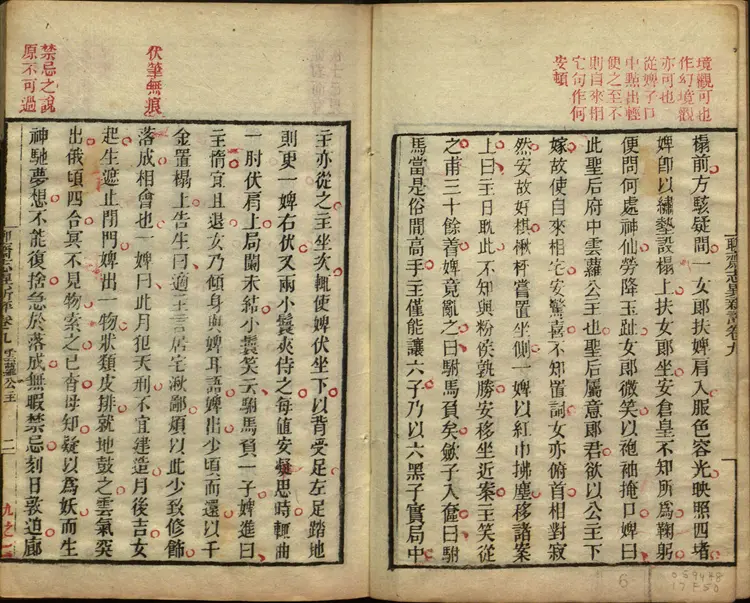 境觀可也
作幻境觀
亦可也
從婢子口
中點出輕
便之至不
則自來相
宅句作何
安頓
聊齋志異新評卷九
榻前方駭疑間一女郎扶婢肩入服色容光映照四堵
婢即以繡墊設榻上扶女郎坐安倉皇不知所為鞠躬
便問何處神仙勞降玉趾女郎微笑以袍袖掩口婢曰
此聖后府中雲蘿公主也聖后屬意郎君欲以公主下
嫁故使自來相宅安驚喜不知置詞女亦俯首相對寂
然安故好棋楸枰嘗置坐側一婢以紅巾拂塵移諸案
上曰主日耽此不知與粉侯孰勝安移坐近案主笑從
之甫三十餘着婢竟亂之曰駙馬負矣斂子入奩曰駙
馬當是俗間高手主僅能讓六子乃以六黑子實局中
6
伏筆無痕
禁忌之說
原不可過
主亦從之主坐次輒使婢伏坐下以背受足左足踏地
則更一婢右伏又兩小鬟夾侍之每值安凝思時輒曲
一肘伏肩上局闌未結小鬟笑云駙馬負一子婢進曰
主惰宜且退女乃傾身與婢耳語婢出少頃而還以千
金置榻上告生曰適主言居宅湫鄙煩以此少致修飾
落成相會也一婢曰此月犯天刑不宜建造月後吉女
起生遮止閉門婢出一物狀類皮排就地鼓之雲氣突
出俄頃四合冥不見物索之已杳母知疑以為妖而生
神馳夢想不能復捨急於落成無暇禁忌刻日敦迫廊
聊齋志異新評卷九 雲蘿公主 二 九之一